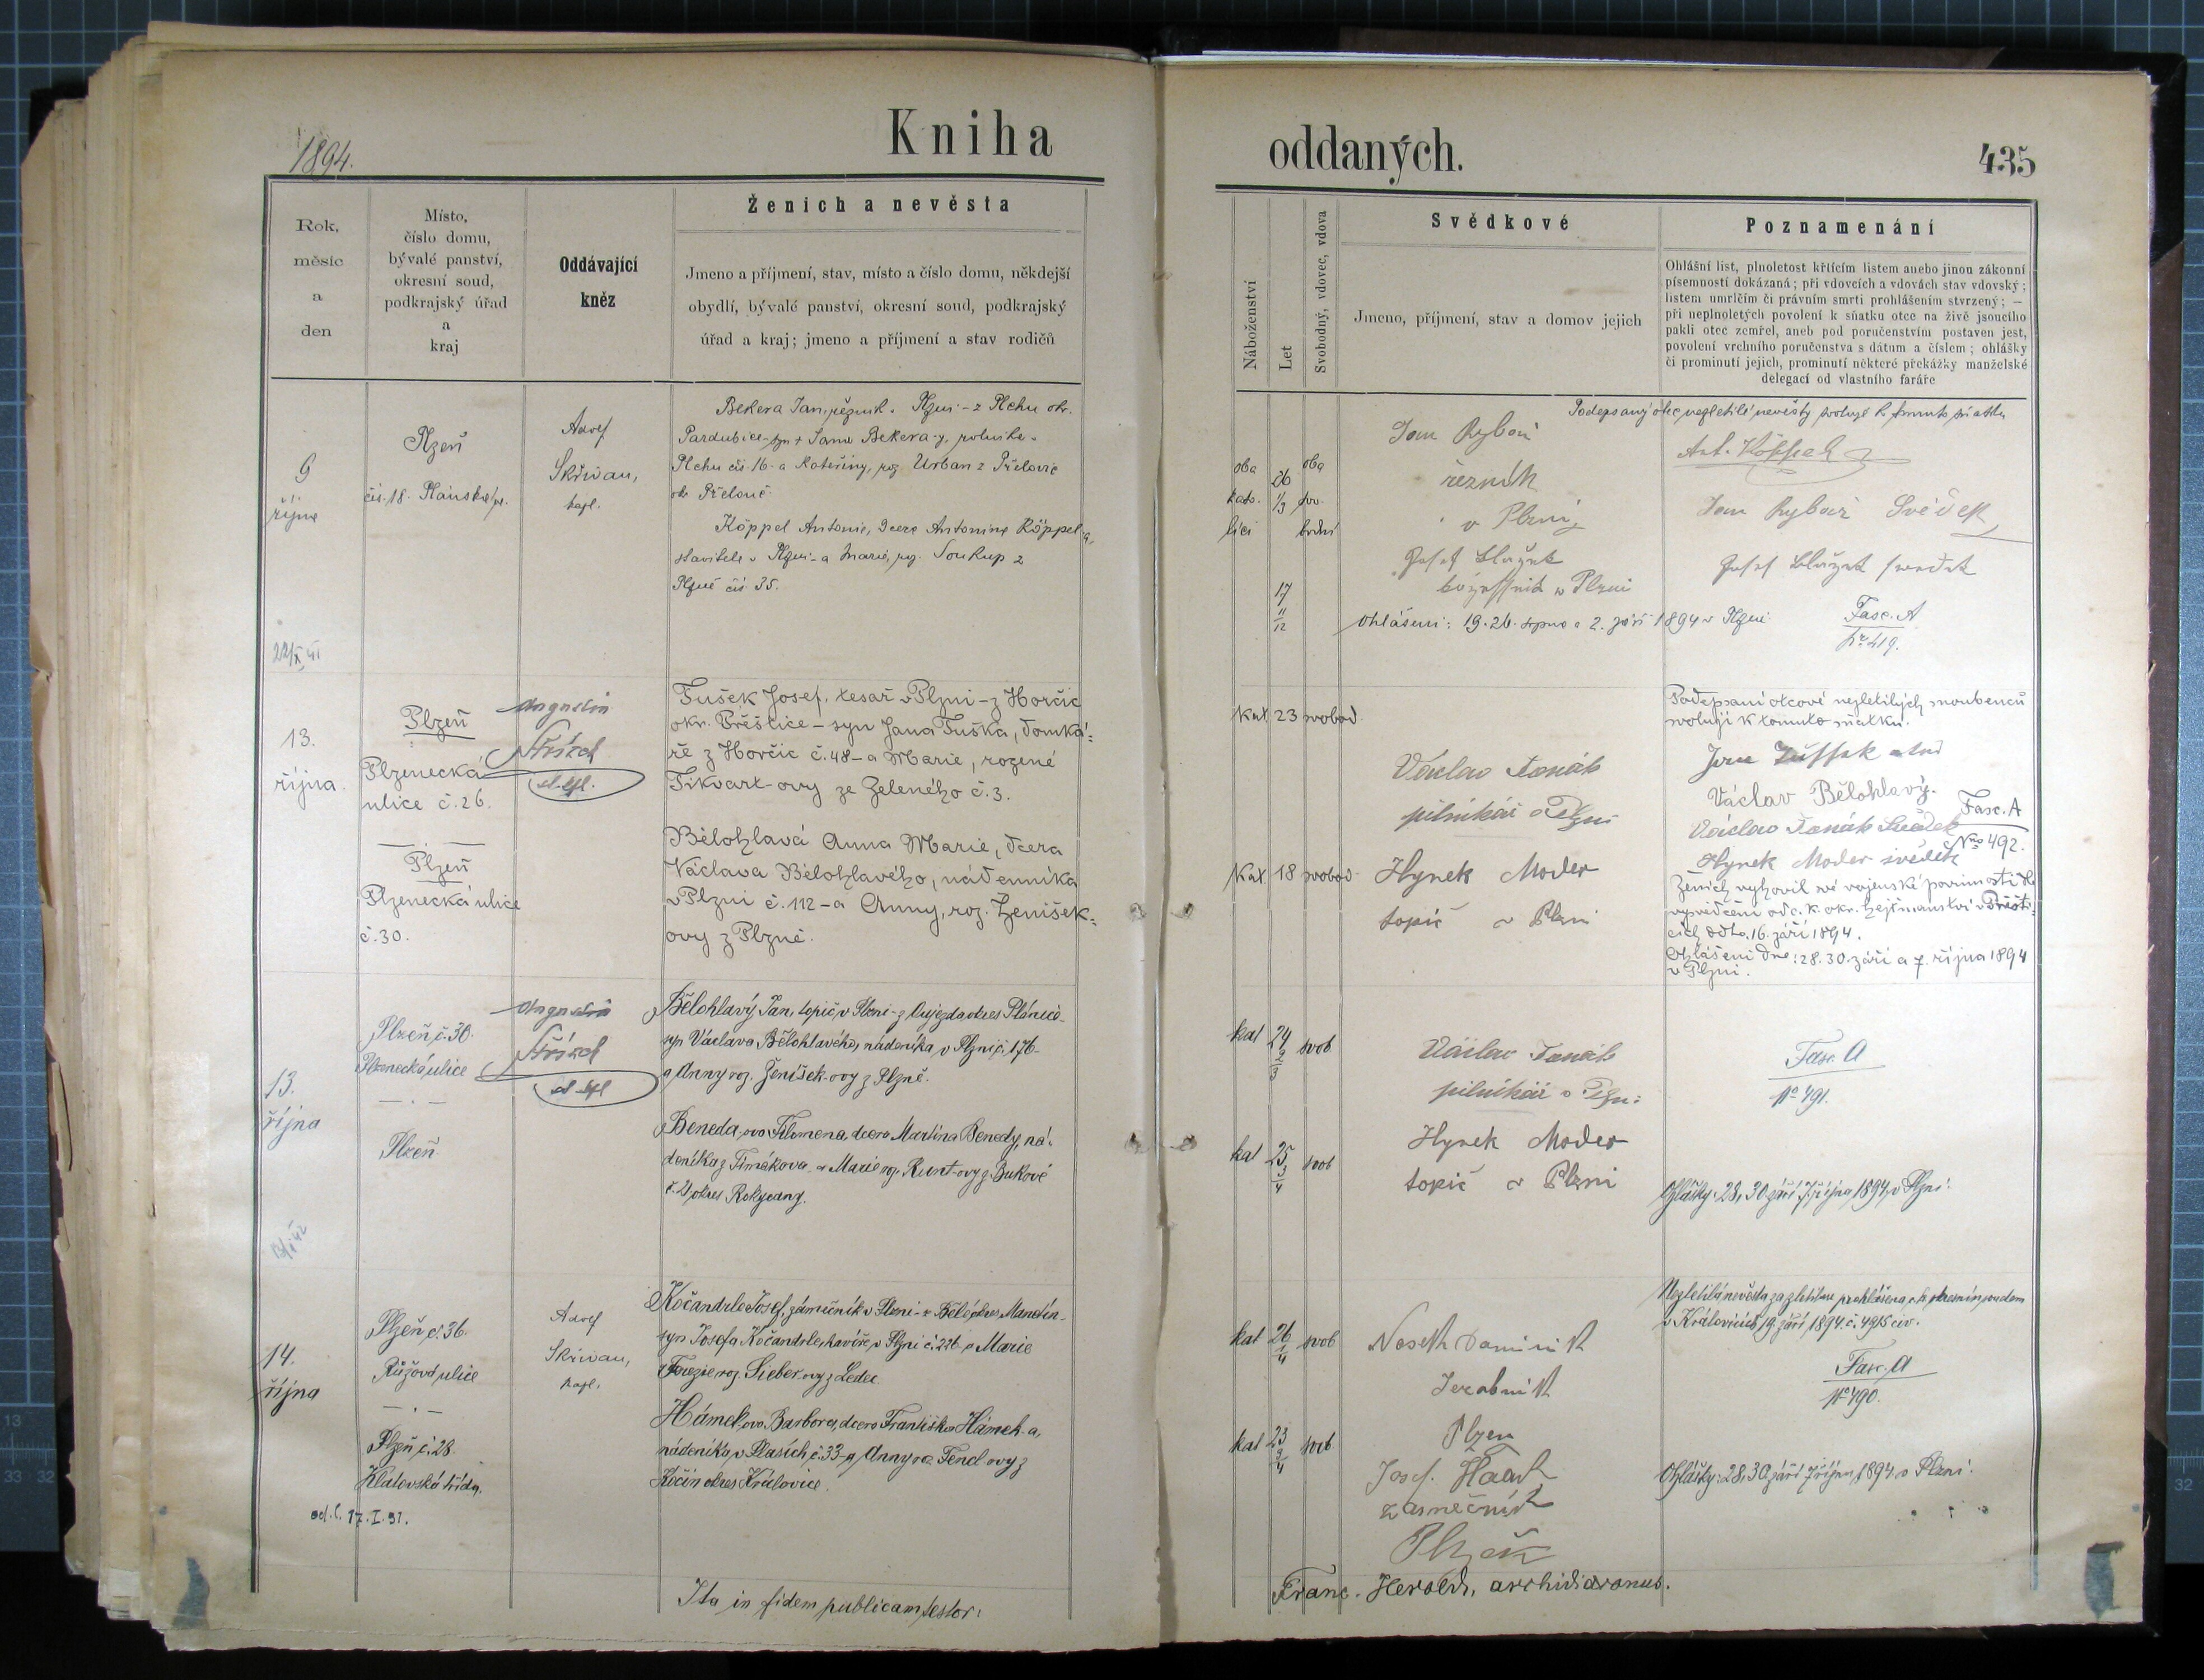 1894.
Kniha
Rok,
měsíc
a
den
Místo,
číslo domu,
bývalé panství,
okresní soud,
podkrajský úřad
a
kraj
Oddávající
kněz
Ženich a nevěsta
Jmeno a příjmení, stav, místo a číslo domu, někdejší
obydlí, bývalé panství, okresní soud, podkrajský
úřad a kraj; jmeno a příjmení a stav rodičů
9
října
Plzeň
čís. 18.
Adolf
Skřivan,
kapl.
Bekera Jan, v Plzni - z Plchu okr.
Pardubice - syn + Jana Bekera-y, rolníka v
Plchu čís. 16. a Kateřiny, roz. Urban z Přelovic
okr. Přelouč.
Köppel Antonie, dcera Antonína Köppel-a,
stavitele v Plzni - a Marie, roz. Soukup z
Plzně čís. 35.
13.
října.
Plzeň
Plzenecká
ulice č. 26.
Plzeň
Plzenecká ulice
č. 30.
Augustin
Fušek Josef, tesař v Plzni - z Horčic
okr. Přeštice - syn Jana Fuška, domká-
ře z Horčic č. 48 - a Marie, rozené
Tikvart-ovy ze Zeleného č. 3.
Bělohlavá Anna Marie, dcera
Václava Bělohlavého, nádenníka
v Plzni č. 112 - a Anny, roz. Ženíšek-
ovy z Plzně.
13.
října
Plzeň č. 30.
Plzenecká ulice
Plzeň
Augustin
Bělohlavý Jan, topič v Plzni - z Aujezda okres Plánice
syn Václava Bělohlavého, nádeníka v Plzni č. 176 -
a Anny roz. Ženíšek-ovy z Plzně.
Beneda-ova Filomena, dcera Martina Benedy, ná-
deníka z Timákova - a Marie roz. Runt-ovy z Bukové
č. 21 okres Rokycany.
14.
října
Plzeň č. 36.
Růžová ulice
Plzeň č. 28.
Klatovská třída.
17. I. 91.
Adolf
Skřivan,
kapl.
Kočandrle Josef, zámečník v Plzni - z Bělé okres Manetín -
syn Josefa Kočandrle, havíře v Plzni č. 226 a Marie
Terezie roz. Sieber-ovy z Ledec.
Hámek-ova Barbora, dcera Františka Hámek-a,
nádeníka v Plasích č. 33 - a Anny roz. Fencl-ovy z
Kočín okres Kralovice.
Ita in fidem publicam testor:
oddaných.
435
Náboženství
Let
Svobodný, vdovec, vdova
Svědkové
Jmeno, příjmení, stav a domov jejich
Poznamenání
Ohlášní list, plnoletost křticím listem anebo jinou zákonní
písemností dokázaná; při vdovcích a vdovách stav vdovský;
listem umrlčím či právním smrti prohlášením stvrzený; —
při neplnoletých povolení k sňatku otce na živě jsoucího
pakli otec zemřel, aneb pod poručenstvím postaven jest,
povolení vrchního poručenstva s dátum a číslem; ohlášky
či prominutí jejich, prominutí některé překážky manželské
delegací od vlastního faráře
Podepsaný otec nezletilé nevěsty svoluje k tomuto sňatku
Ant. Köppel
oba
kato-
líci
26
1/3
oba
svo-
bodni
Jan Rybař
řezník
v Plzni
Jan Rybař Svědek
Josef Blažek
v Plzni
Josef Blažek svědek
17
11/12
Ohlášeni: 19. 26. srpna a 2. září 1894 v Plzni.
Fasc. A
419.
Kat. 23 svobod.
Podepsaní otcové nezletilých snoubenců
svolují k tomuto sňatku.
Václav Tanák
pilníkář v Plzni
Václav Bělohlavý.
Václav Tanák Svědek
Fasc. A
Nro 492.
Kat. 18 svobod.
Hynek Moder
topič v Plzni
Hynek Moder svědek
Ženich vyhověl své vojenské povinosti dle
vysvědčení od c. k. okr. hejtmanství v Přešti-
cích ddto. 16. září 1894.
Ohlášeni dne: 28. 30. září a 7. října 1894
v Plzni.
kat 24 2/3 svob
Václav Tanák
pilníkář v Plzni
Fasc. A
No 491.
kat 25 3/4 svob
Hynek Moder
topič v Plzni
Ohlášky: 28, 30 září 7 října 1894 v Plzni.
Nezletilá nevěsta za zletilou prohlášena c. k. okresním soudem
v Kralovicích 19. září 1894. č. 4915 civ.
kat 26 1/4 svob
Nosek Dominik
Plzen
Fasc. A
No 490.
kat 23 3/4 svob
Josef
zámečník
Plzeň
Ohlášky: 28, 30 září 7 října 1894. v Plzni.
Franc. Herold, archidiaconus.